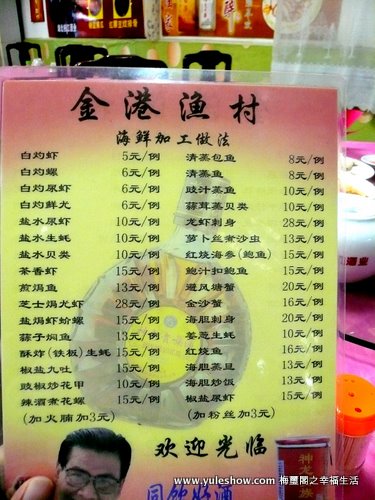 金港漁村
海鲜加工做法
白灼虾 5元/例
白灼螺 6元/例
白灼尿虾 6元/例
白灼鲜尤 6元/例
盐水尿虾 10元/例
盐水生蚝 10元/例
盐水贝类 10元/例
茶香虾 15元/例
煎焗鱼 13元/例
芝士焗尤虾 28元/例
盐焗虾蚧螺 15元/例
蒜子焖鱼 13元/例
酥炸(铁板)生蚝 15元/例
椒盐九吐 15元/例
豉椒炒花甲 10元/例
辣酒煮花螺 15元/例
(加火腩加3元)
清蒸包鱼 8元/例
清蒸鱼 8元/例
豉汁蒸鱼 10元/例
蒜茸蒸贝类 10元/例
龙虾刺身 28元/例
萝卜丝煮沙虫 13元/例
红烧海参(鲍鱼) 15元/例
鲍汁扣鲍鱼 15元/例
避风塘蟹 20元/例
金沙蟹 16元/例
海胆刺身 20元/例
姜葱生蚝 10元/例
红烧鱼 16元/例
海胆蒸旦 13元/例
海胆炒饭 13元/例
椒盐尿虾 15元/例
(加粉丝加3元)
欢迎光临
神龙
www.yuleshow.com 梅璽閣之幸福生活